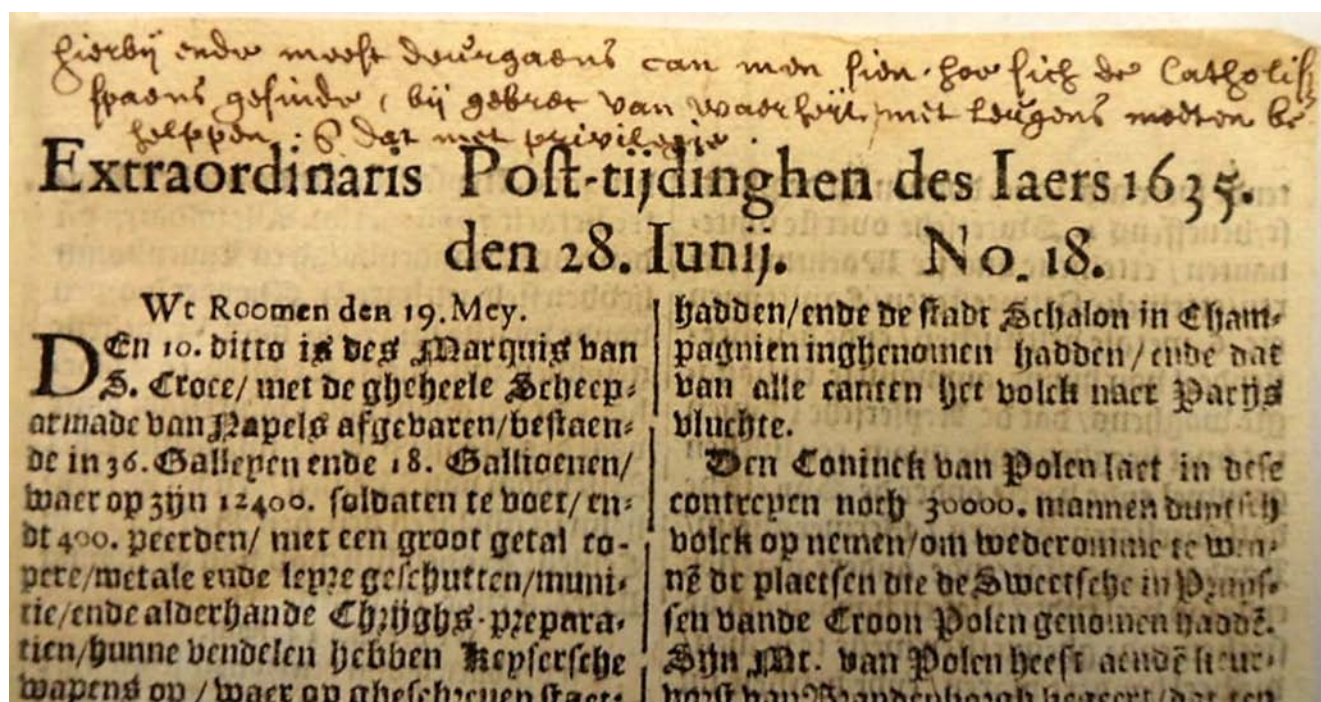 hierbij ende meest deurgaens can men sien hoe sich de Catholijk
spaens gesinde, bij gebrec van waerheijt, met leugens moeten be
helppen. & dat met privilegie.
Extraordinaris Post-tijdinghen des Iaers 1635.
den 28. Iunij. No. 18.
Wt Roomen den 19. Mey.
DEn 10. ditto is des Marquis van
S. Croce/ met de gheheele Scheep-
armade van Napels afgevaren/bestaen-
de in 36. Galleyen ende 18. Gallioenen/
waer op zijn 12400. soldaten te voet/ en-
dt 400. peerden/ met een groot getal co-
pere/metale ende yepre geschutten/muni-
tie/ende alderhande Chrijghs-prepara-
tien/hunne vendelen hebben Keyserscha
wapens op / waer op gheschreven staet:
hadden/ende de stadt Schalon in Cham-
pagnien inghenomen hadden/ ende dat
van alle canten het volck naer Parijs
vluchte.
Den Coninck van Polen laet in dese
contreyen noch 30000. mannen
volck op nemen/om wederomme te win-
nē de plaetsen die de Sweetsche in Pruys-
sen vande Croon Polen genomen haddē.
Sijn Mt. van Polen heeft aendē keur-
vorst van Brandenborgh begeert/dat